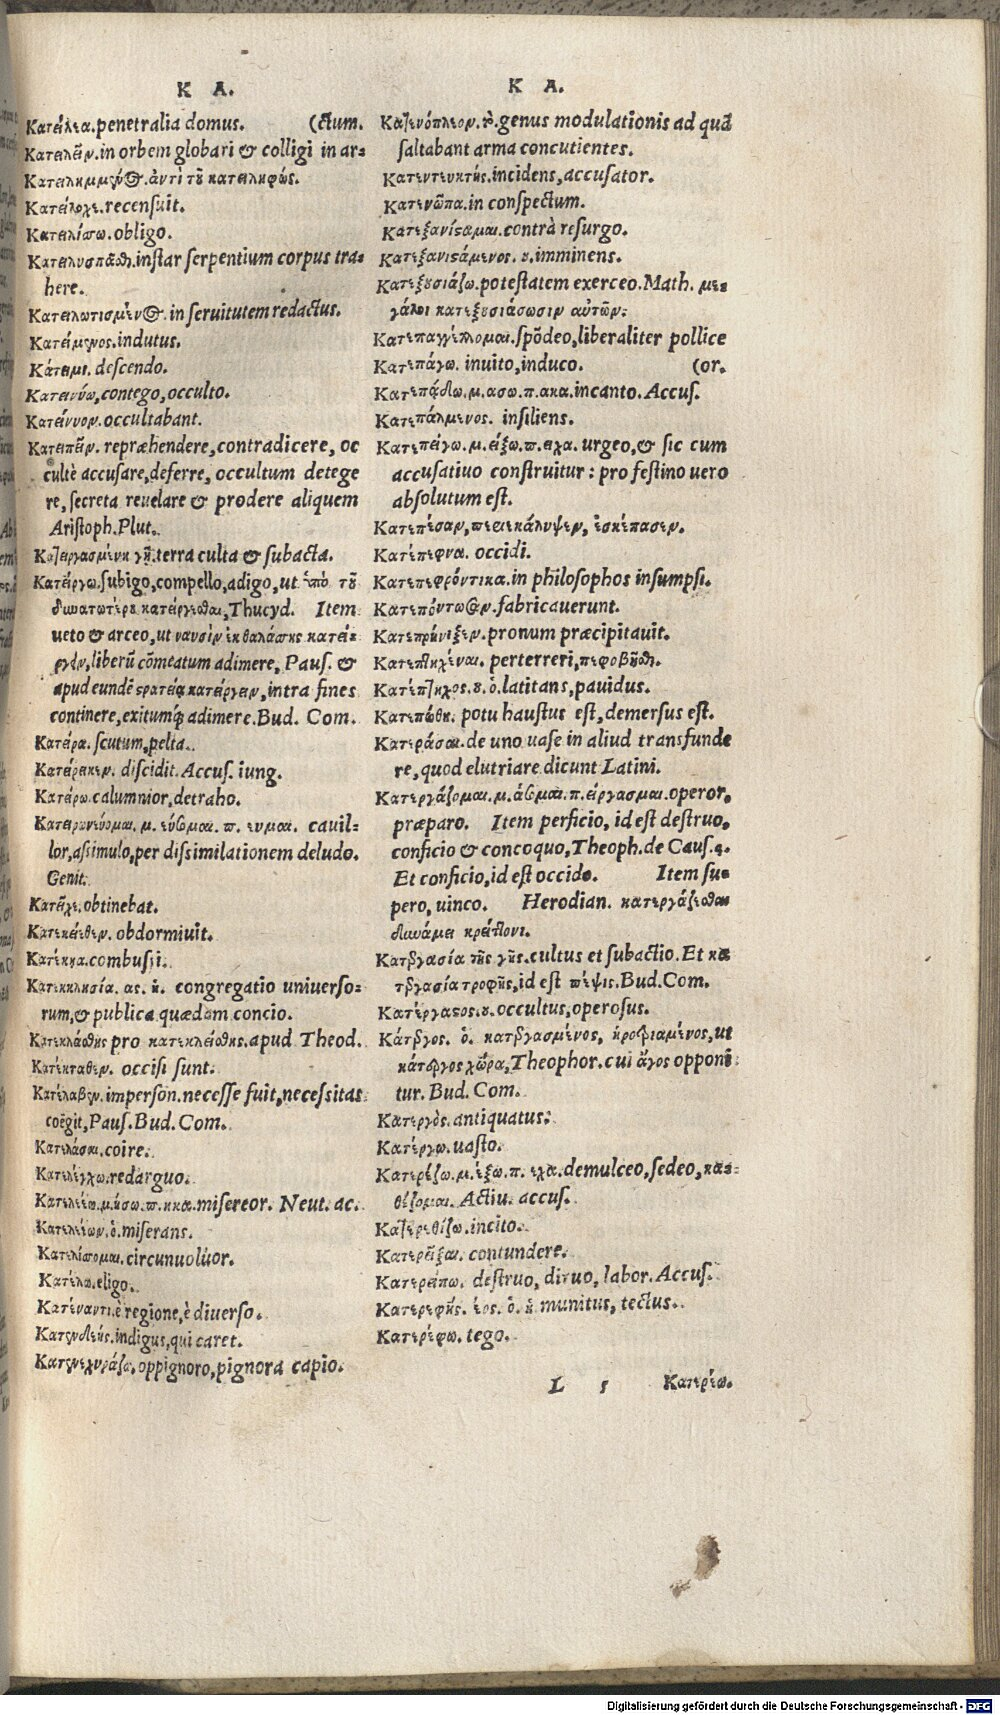 K A.
Κατείλεα. penetralia domus. (ctum.
Κατειλεῖν. in orbem globari & colligi in ar=
Κατειλημμένος. ἀντὶ τοῦ κατειληφώς.
Κατείλοχε. recensuit.
Κατειλίσσω. obligo.
Κατειλυσπᾶσθαι. instar serpentium corpus tra=
here.
Κατειλωτισμένος. in seruitutem redactus.
Κατείμενος. indutus.
Κάτειμι. descendo.
Κατεινύω, contego, occulto.
Κατείνυον. occultabant.
Κατειπεῖν. repræhendere, contradicere, oc
cultè accusare, deferre, occultum detege
re, secreta reuelare & prodere aliquem
Aristoph. Plut.
Κατειργασμένη γῆ. terra culta & subacta.
Κατείργω. subigo, compello, adigo, ut ὑπὸ τοῦ
δυνατωτέρου κατείργεσθαι, Thucyd. Item
ueto & arceo, ut ναυσὶν ἐκ θαλάσσης κατεί=
ργειν, liberū cōmeatum adimere, Paus. &
apud eundē στρατείᾳ κατείργειν, intra fines
continere, exitumq; adimere. Bud. Com.
Κατείρα. scutum, pelta.
Κατείρακεν. discidit. Accus. iung.
Κατείρω. calumnior, detraho.
Κατειρωνεύομαι. μ. εύσομαι. π. ευμαι. cauil=
lor, assimulo, per dissimilationem deludo.
Genit.
Κατεῖχε. obtinebat.
Κατεκείαθεν. obdormiuit.
Κατέκηα. combussi.
Κατεκκλησία. ας. ἡ. congregatio uniuerso=
rum, & publica quædam concio.
Κατεκλάσθης pro κατεκλείσθης. apud Theod.
Κατέκταθεν. occisi sunt.
Κατέλαβεν. imperson. necesse fuit, necessitas
coëgit, Paus. Bud. Com.
Κατελάσαι. coire.
Κατελέγχω. redarguo.
Κατελεέω. μ. ήσω. π. ηκα. misereor. Neut. ac.
Κατελεέων. ὁ. miserans.
Κατελίσσομαι. circunuoluor.
Κατέλω. eligo.
Κατέναντι. è regione, è diuerso.
Κατενδεής. indigus, qui caret.
Κατενεχυράζω. oppignoro, pignora capio.
K A.
Κατενόπλιον. τὸ. genus modulationis ad quā
saltabant arma concutientes.
Κατεντευκτής. incidens, accusator.
Κατενῶπα. in conspectum.
Κατεξανίσταμαι. contrà resurgo.
Κατεξανιστάμενος. ου. imminens.
Κατεξουσιάζω. potestatem exerceo. Math. με=
γάλοι κατεξουσιάσωσιν αὐτῶν.
Κατεπαγγέλλομαι. spōdeo, liberaliter pollice
Κατεπάγω. inuito, induco. (or.
Κατεπᾴδω. μ. ασω. π. ακα. incanto. Accus.
Κατεπάλμενος. insiliens.
Κατεπείγω. μ. είξω. π. ειχα. urgeo, & sic cum
accusatiuo construitur: pro festino uero
absolutum est.
Κατεπέσαν, περιεκάλυψεν, ἐσκέπασεν.
Κατέπεφνα. occidi.
Κατεπεφρόντικα. in philosophos insumpsi.
Κατεπόντωσαν. fabricauerunt.
Κατεπρήνιξεν. pronum præcipitauit.
Κατεπτηχέναι. perterreri, πεφοβῆσθαι.
Κατέπτηχος. ου. ὁ. latitans, pauidus.
Κατεπώθη. potu haustus est, demersus est.
Κατεράσαι. de uno uase in aliud transfunde
re, quod elutriare dicunt Latini.
Κατεργάζομαι. μ. άσομαι. π. είργασμαι. operor,
præparo. Item perficio, id est destruo,
conficio & concoquo, Theoph. de Caus. 4.
Et conficio, id est occido. Item su=
pero, uinco. Herodian. κατεργάζεσθαι
δυνάμει κρείττονι.
Κατεργασία τῆς γῆς. cultus et subactio. Et κα
τεργασία τροφῆς, id est πέψις. Bud. Com.
Κατέργαστος. ου. occultus, operosus.
Κάτεργος. ὁ. κατεργασμένος, ἠροτριαμένος, ut
κάτεργος χώρα, Theophor. cui ἄγος opponi
tur. Bud. Com.
Κατεργὸς. antiquatus.
Κατέργω. uasto.
Κατερέζω. μ. έξω. π. εχα. demulceo, sedeo, κα=
θέζομαι. Actiu. accus.
Κατερεθίζω. incito.
Κατερεῖξαι. contundere.
Κατερείπω. destruo, diruo, labor. Accus.
Κατερεφής. έος. ὁ. ἡ munitus, tectus.
Κατερέφω. tego.
L 5 Κατερέω.
Digitalisierung gefördert durch die Deutsche Forschungsgemeinschaft - DFG